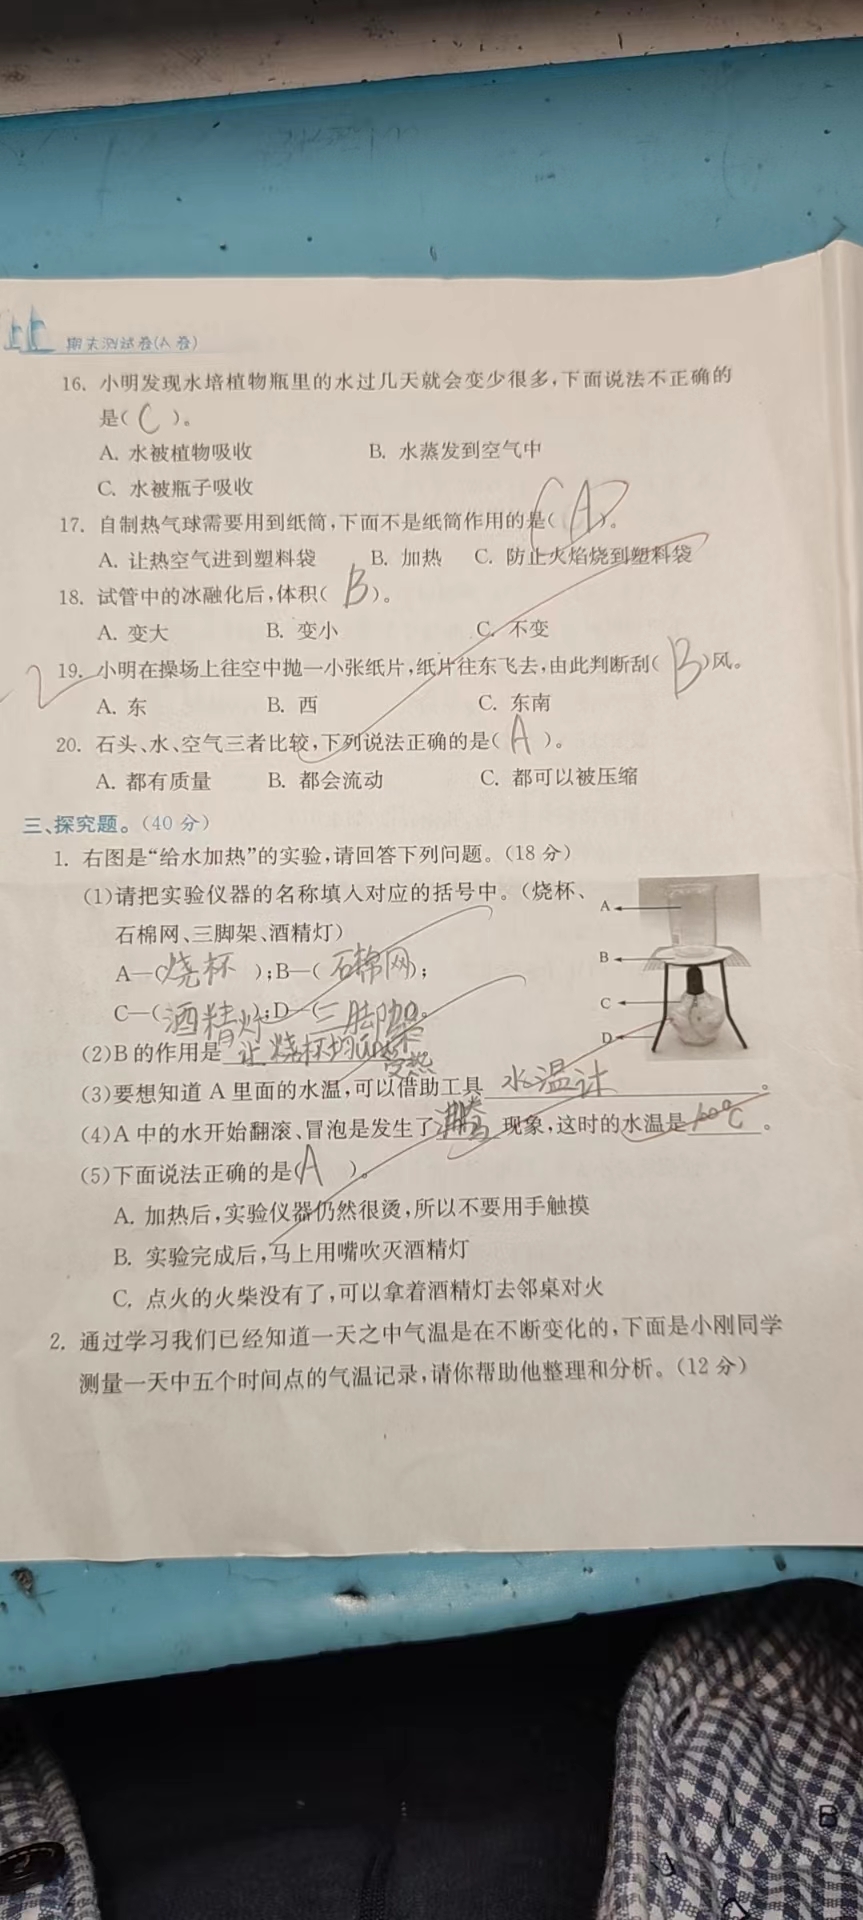 期末测试卷(A卷)
16. 小明发现水培植物瓶里的水过几天就会变少很多,下面说法不正确的
是( C )。
A. 水被植物吸收 B. 水蒸发到空气中
C. 水被瓶子吸收
17. 自制热气球需要用到纸筒,下面不是纸筒作用的是( A )。
A. 让热空气进到塑料袋 B. 加热 C. 防止火焰烧到塑料袋
18. 试管中的冰融化后,体积( B )。
A. 变大 B. 变小 C. 不变
19. 小明在操场上往空中抛一小张纸片,纸片往东飞去,由此判断刮( B )风。
A. 东 B. 西 C. 东南
20. 石头、水、空气三者比较,下列说法正确的是( A )。
A. 都有质量 B. 都会流动 C. 都可以被压缩
三、探究题。(40 分)
1. 右图是“给水加热”的实验,请回答下列问题。(18 分)
(1)请把实验仪器的名称填入对应的括号中。(烧杯、
石棉网、三脚架、酒精灯)
A—(烧杯);B—(石棉网);
C—(酒精灯);D—(三脚架)。
A
B
C
D
(2)B 的作用是 让烧杯均匀受热
(3)要想知道 A 里面的水温,可以借助工具 水温计 。
(4)A 中的水开始翻滚、冒泡是发生了 沸腾 现象,这时的水温是 100℃ 。
(5)下面说法正确的是( A )。
A. 加热后,实验仪器仍然很烫,所以不要用手触摸
B. 实验完成后,马上用嘴吹灭酒精灯
C. 点火的火柴没有了,可以拿着酒精灯去邻桌对火
2. 通过学习我们已经知道一天之中气温是在不断变化的,下面是小刚同学
测量一天中五个时间点的气温记录,请你帮助他整理和分析。(12 分)